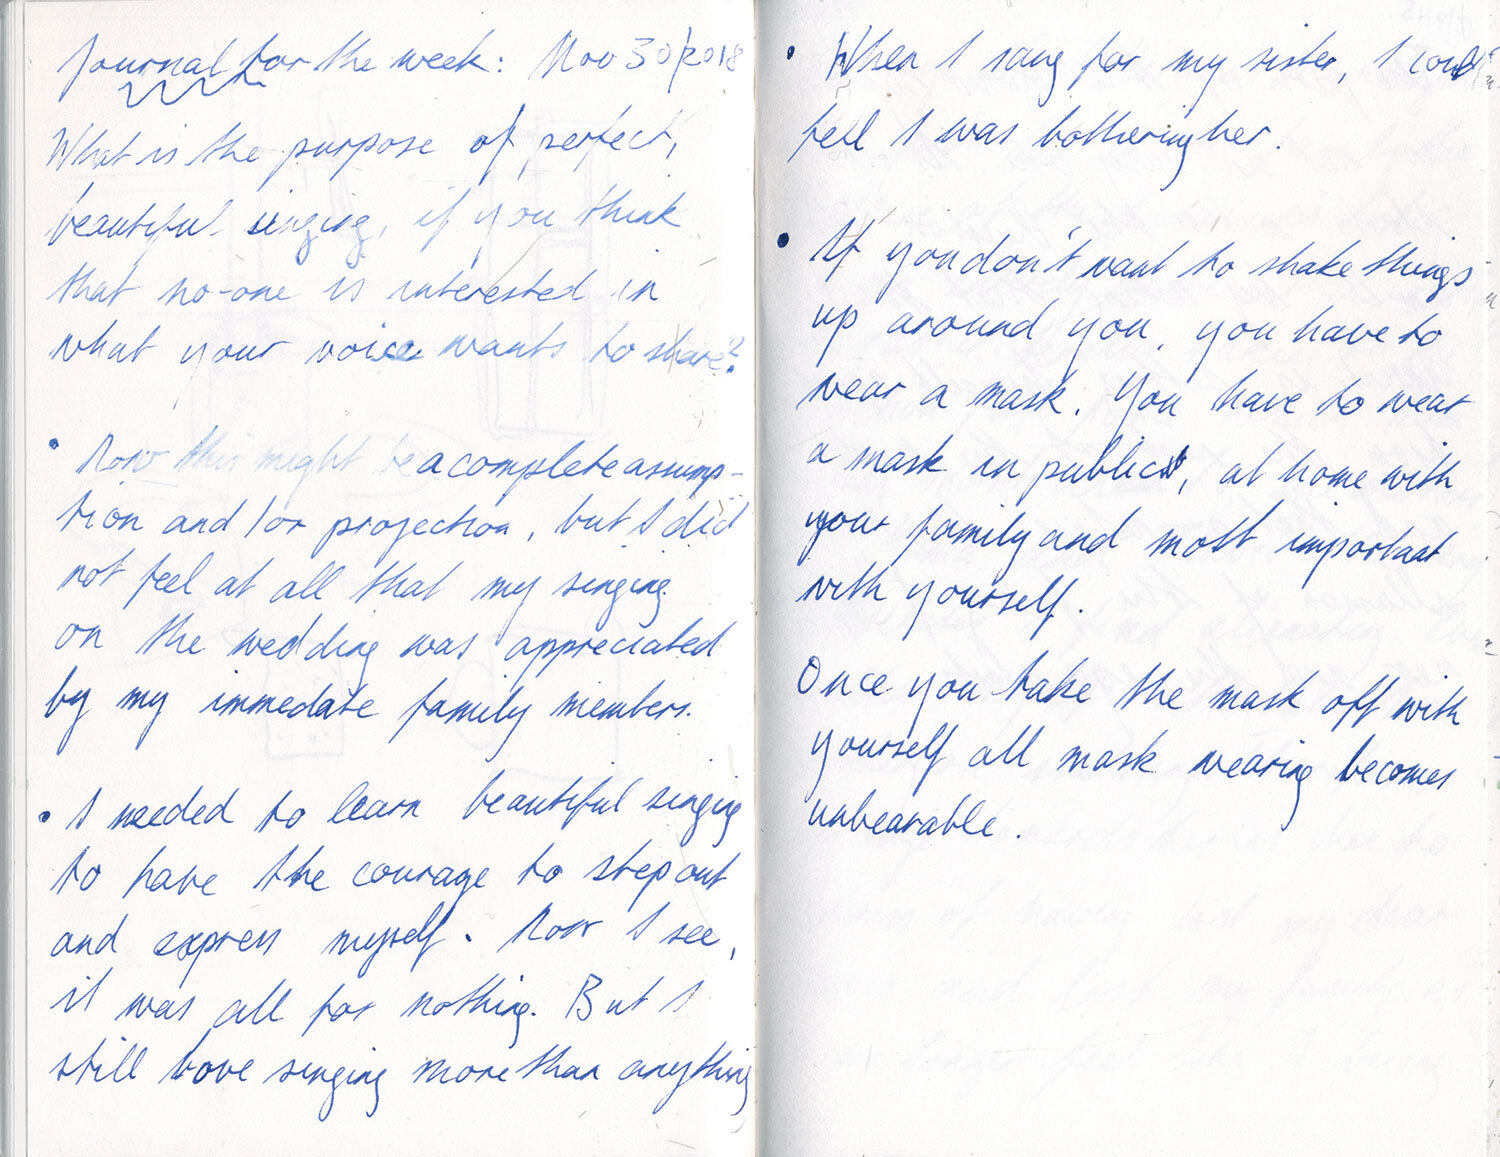 Journal for the week: Nov 30/2018
What is the purpose of perfect,
beautiful singing, if you think
that no-one is interested in
what your voice wants to share?
• Now this might be a complete assump-
tion and/or projection, but I did
not feel at all that my singing
on the wedding was appreciated
by my immediate family members.
• I needed to learn beautiful singing
to have the courage to step out
and express myself. Now I see,
it was all for nothing. But I
still love singing more than anything
• When I sang for my sister, I could
tell I was bothering her.
• If you don't want to shake things
up around you, you have to
wear a mask. You have to wear
a mask in public, at home with
your family and most important
with yourself.
Once you take the mask off with
yourself all mask wearing becomes
unbearable.